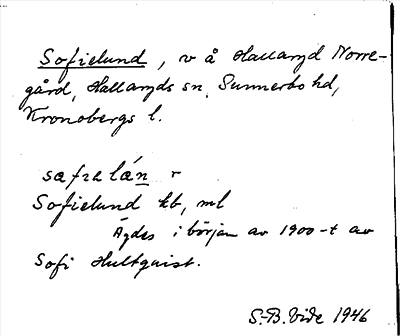 Sofielund, v å Hallaryd Norre-
gård, Hallaryds sn, Sunnerbo hd,
Kronobergs l.
sæfrelǽn r
Sofielund kb, ml
Ägdes i början av 1900-t av
Sofi Hultquist.
S.-B. Vide 1946